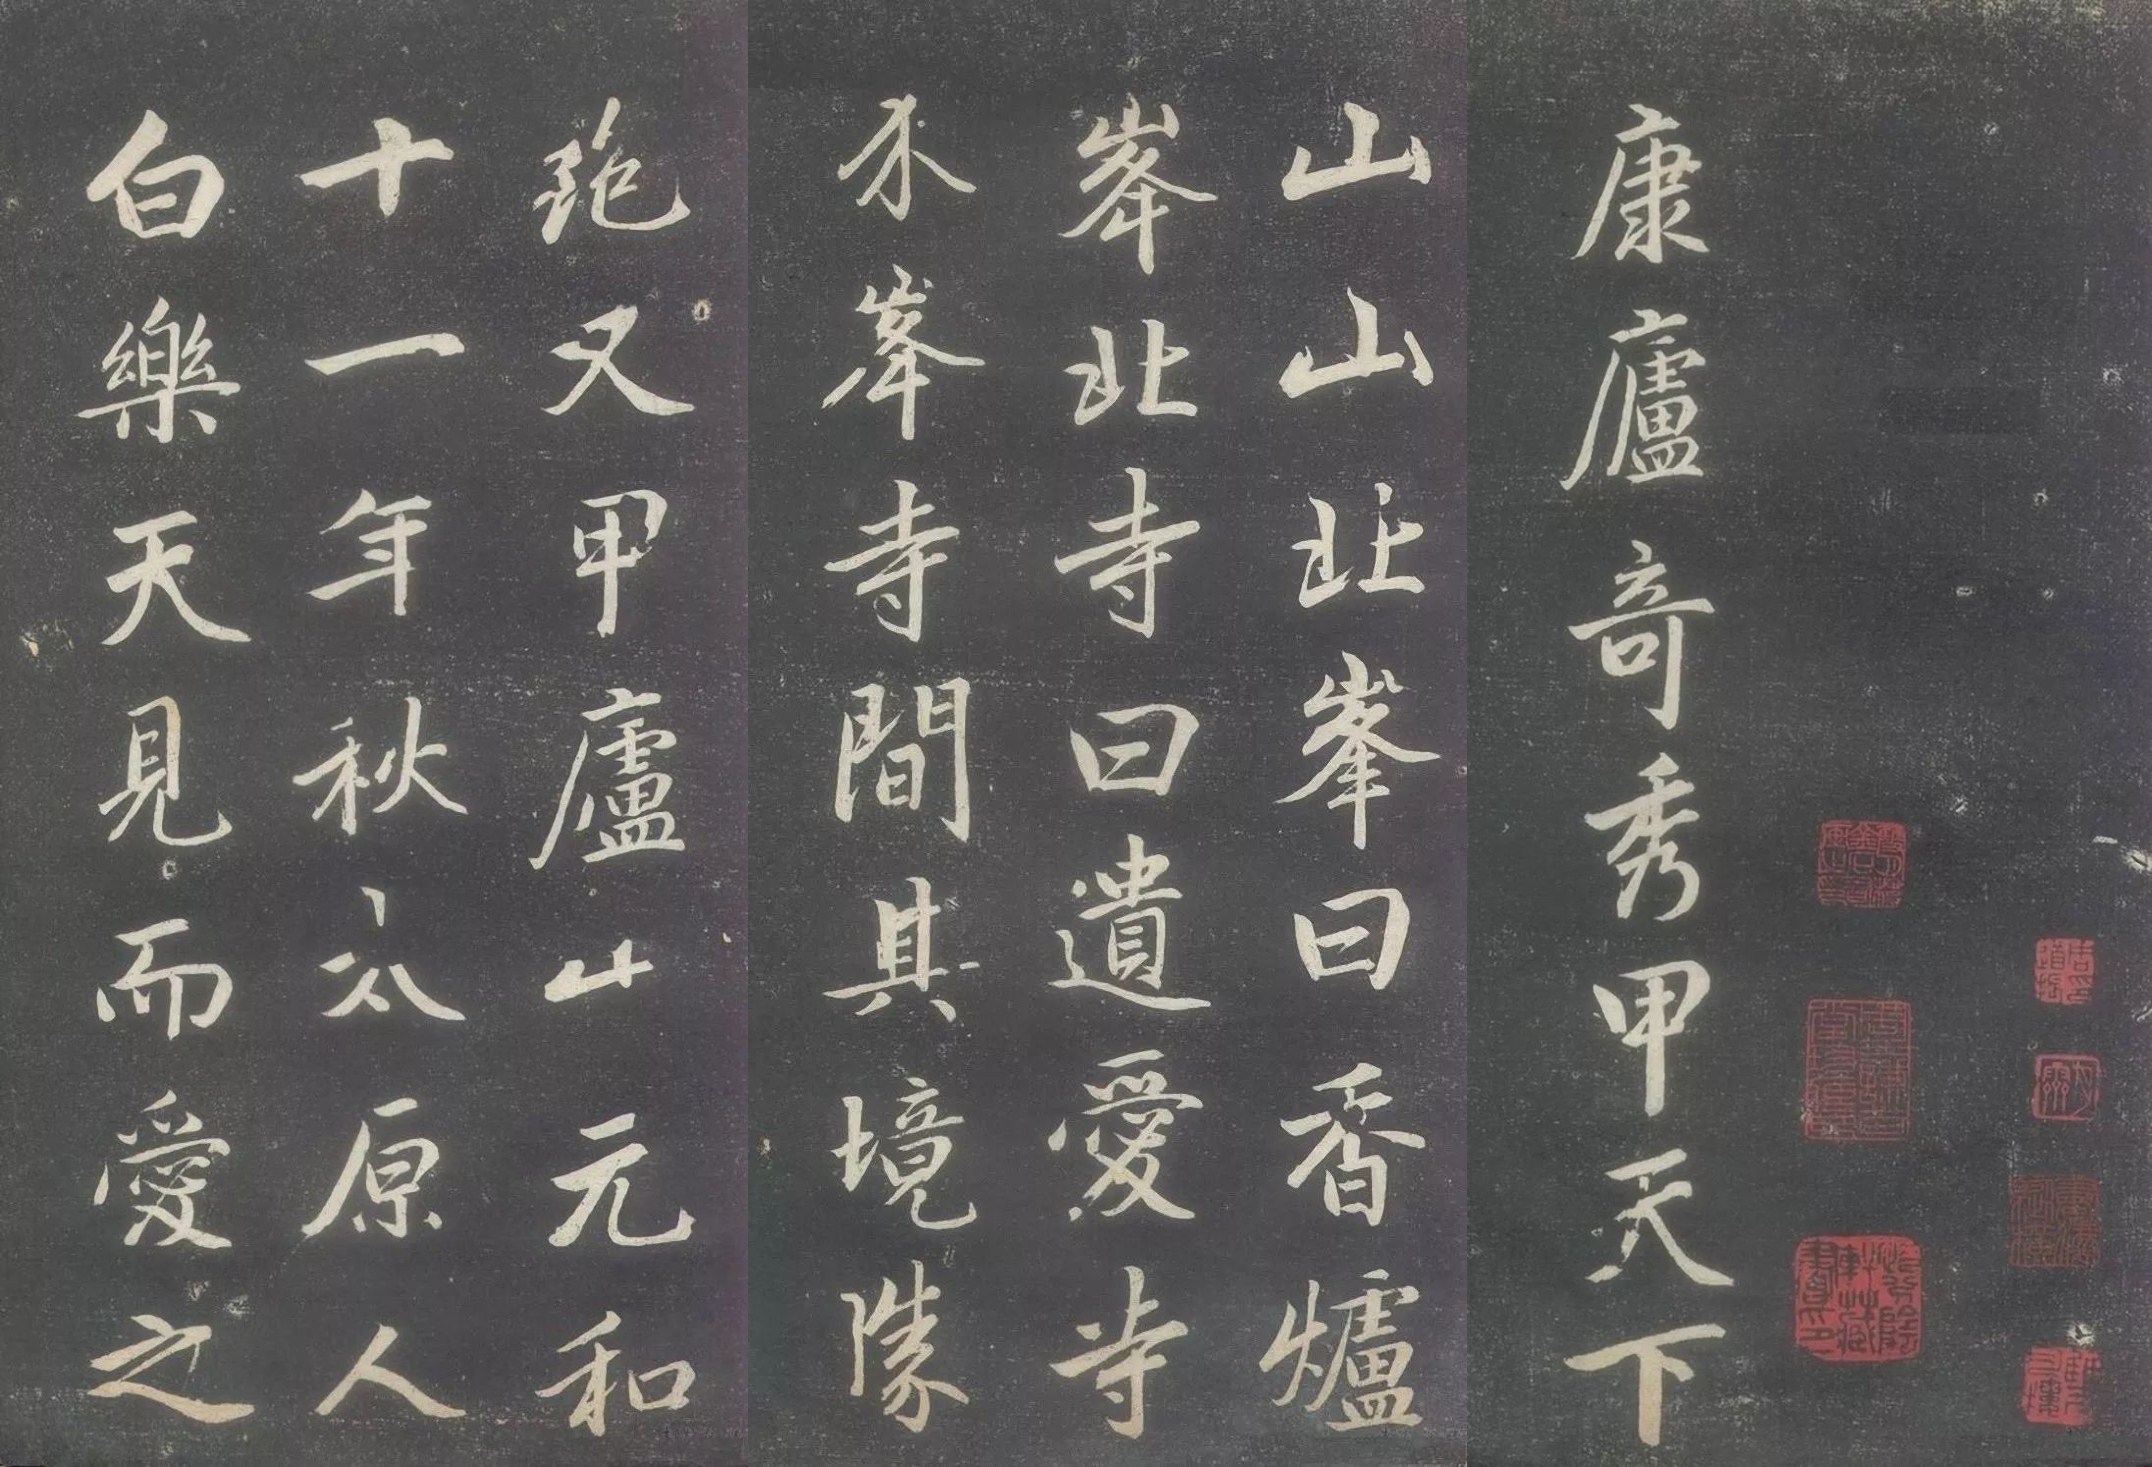 康廬奇秀甲天下
山山北峯曰香爐
峯北寺曰遺愛寺
介峯寺間其境勝
絶又甲廬山元和
十一年秋太原人
白樂天見而愛之